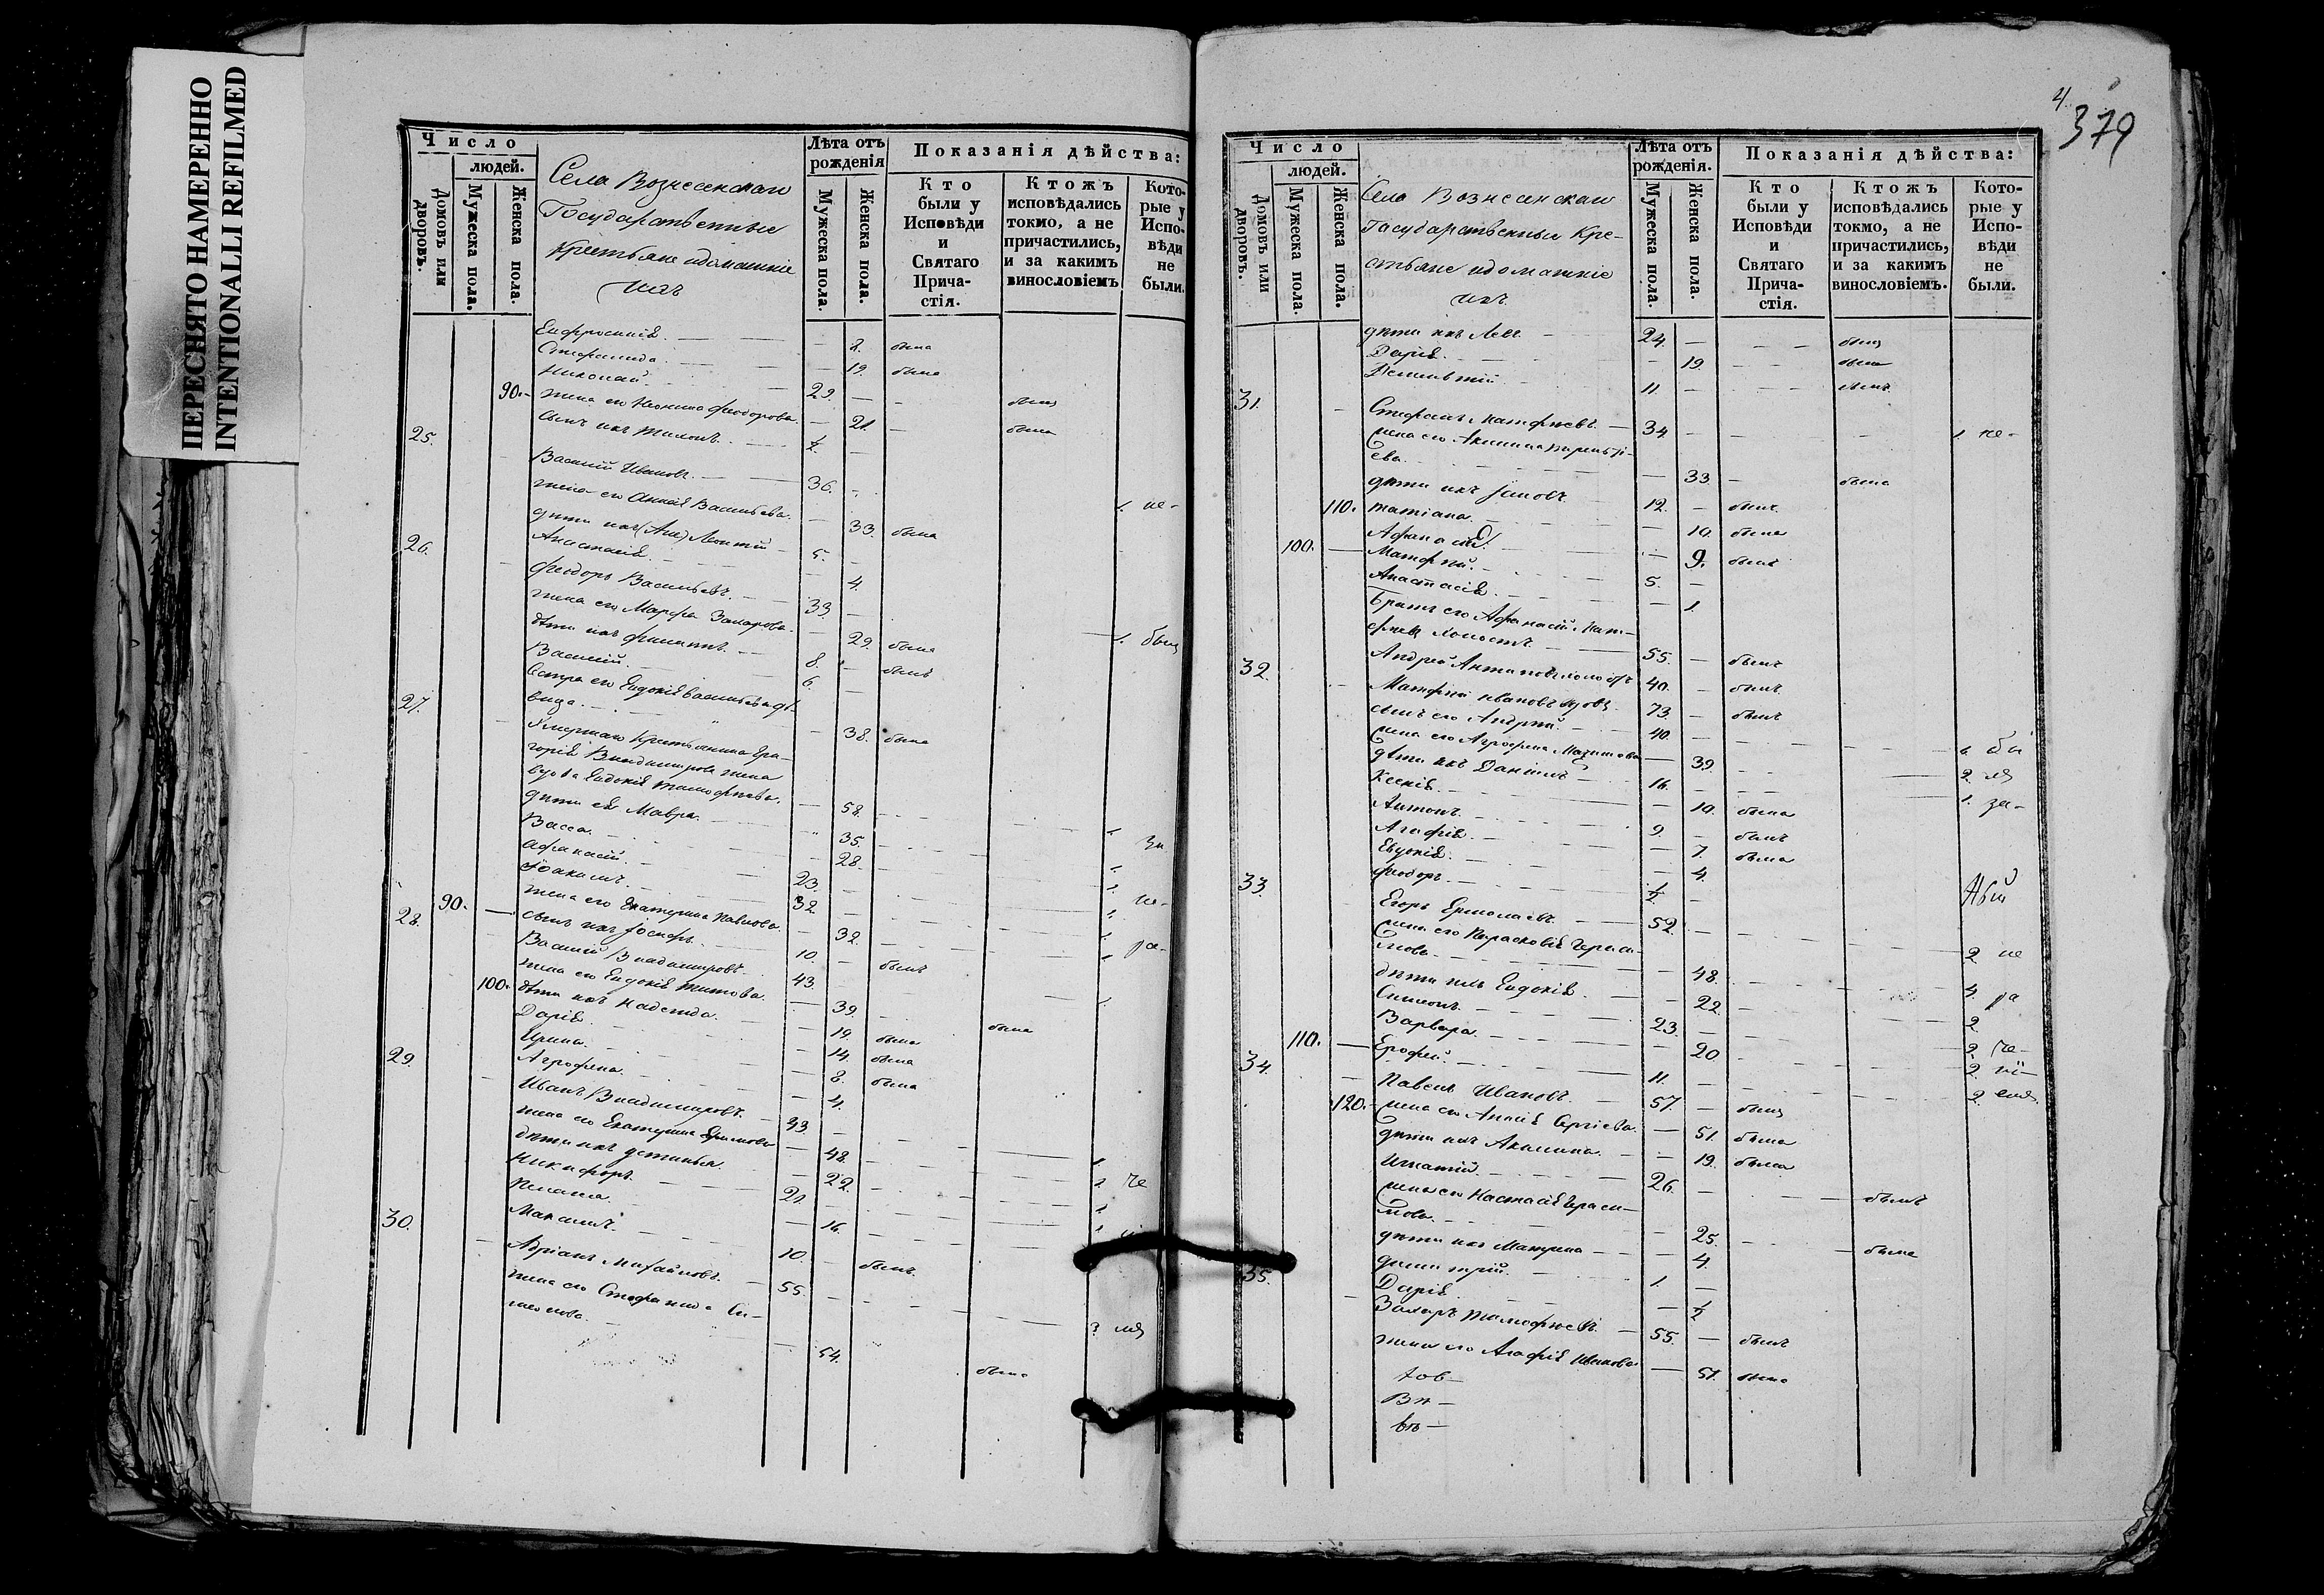 ПЕРЕСНЯТО НАМЕРЕННО
INTENTIONALLI REFILMED
Число
людей.
Домовъ или дворовъ.
Мужеска пола.
Женска пола.
Села Вознесенскаго
Государственные
Крестьяне и домашніе
ихъ
Лѣта отъ рожденія
Мужеска пола.
Женска пола.
Показанія дѣйства:
Кто были у Исповѣди и Святаго Прича-стія.
Ктожъ исповѣдались токмо, а не причастились, и за какимъ винословіемъ
Кото-рые у Испо-вѣди не были.
Евфросинія. — 2. была
Стефанида. — 19. была
Николай. 29. — былъ
90. жена его Феодорова. — 21. — была
25. сынъ ихъ ½ —
Василій Ивановъ. 36. 1. не-
жена его Анна Васильева. — 33. была
дѣти ихъ Леонтій 5. —
26. Анастасія. — 4.
Феодоръ Васильевъ. 33. — 1. былъ
жена его Марфа Захарова. — 29. была
дѣти ихъ Филиппъ. 8. — былъ
Василій. 6. —
сестра его Евдокія Васильева дѣ-
27. вица. — 38. была
Умершаго Крестьянина Гри-
горія Владимірова жена
вдова Евдокія Тимофеева. — 58. 1.
дѣти ея Мавра. 35. за
Васса. — 28. 1.
Афанасій. 23. — 1.
Іоакимъ. 32. — 1. не-
90. жена его Екатерина Павлова. — 32. 1.
28. сынъ ихъ Іосифъ. 10. — былъ
Василій Владиміровъ. 43. 1. ра-
жена его Евдокія Титова. — 39. была
100. дѣти ихъ Надежда. — 19. была
Дарія. — 14. была
Ирина. — 8. была
29. Агрофена. — 4.
Иванъ Владиміровъ. 43. — 1.
жена его Екатерина — 48. 2 че
дѣти ихъ Устинья. — 22. 1
Никифоръ. 21. — 1
Пелагея. — 16.
30. Максимъ. 10. — былъ
Адріанъ Михайловъ. 55. — 3
жена его Стефанида Си-
— 54. была
4.
379
Число
людей.
Домовъ или дворовъ.
Мужеска пола.
Женска пола.
Села Вознесенскаго
Государственные Кре-
стьяне и домашніе
ихъ
Лѣта отъ рожденія.
Мужеска пола.
Женска пола.
Показанія дѣйства:
Кто были у Исповѣди и Святаго Прича-стія.
Ктожъ исповѣдались токмо, а не причастились, и за какимъ винословіемъ.
Кото-рые у Испо-вѣди не были.
дѣти ихъ Левъ 24. — былъ
Дарія. — 19. — была
11. — былъ
31. Стефанъ Матфѣевъ. 34. — 1 не-
жена его Акилина
ева. — 33 — была
дѣти ихъ 12. — былъ
110. Татіана. — 10. была
Афанасій. — 9. былъ
100. Матфій. 5. —
Анастасія. — 1
Братъ его Афанасій Мат-
фѣевъ холостъ. 55. — былъ
32. Андрей 40. — былъ
Матфѣй Ивановъ вдовъ. 73. — былъ
сынъ его Андрей. 40. — 1. бы
жена его Агрофена — 39. 2.
дѣти ихъ Даніилъ 16. — 1. за-
Ксенія. — 10. была
Антонъ. 9. — былъ
Агафія. — 7. была
Евдокія. — 4.
33. Феодоръ. ½ —
Егоръ Ермолаевъ. 52. — 2 не
жена его Парасковія Гераси-
мова. — 48. 4. ра
дѣти ихъ Евдокія. — 22. 2.
Симеонъ. 23. — 2. че-
Варвара. — 20 2.
110. Ерофей. 11. — 2.
34. Павелъ Ивановъ. 57. — былъ
120. жена его Анна Сергіева. — 51. была
дѣти ихъ Акилина. — 19. была
Игнатій. 26. — былъ
жена его Настасія Гераси-
мова. — 25. — была
дѣти ихъ Матрена — 4.
Димитрій. 1. —
35. Дарія. — ½
Захаръ Тимофѣевъ. 55. — былъ
жена его Агафія Иванова — 51. была